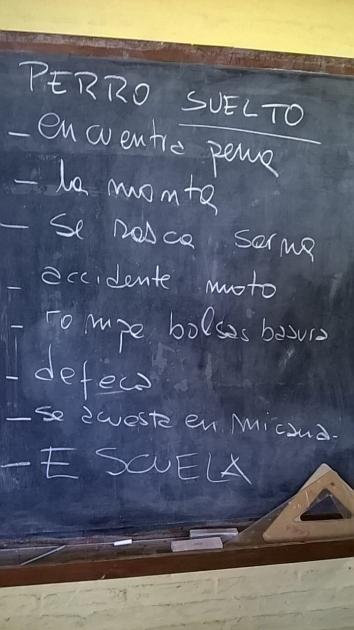 PERRO SUELTO
- encuentra perra
- la monta
- se rasca sarna
- accidente moto
- rompe bolsas basura
- defeca
- se acuesta en mi cama.
- ESCUELA